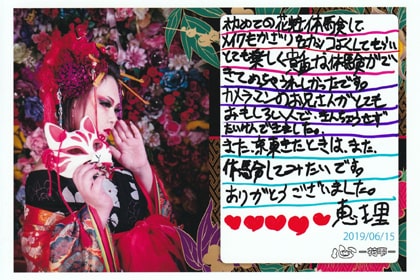 初めての花魁体験して
メイクもかざりもカッコよくしてもらい
とても楽しく貴重な体験ができ
きてめちゃうれしかったです。
カメラマンのお兄さんがとても
おもしろい人で、きんちょうせず
たいけんできました。
また、京東きたときは、また、
体験してみたいです。
ありがとうございました。
恵理
2019/06/15
心